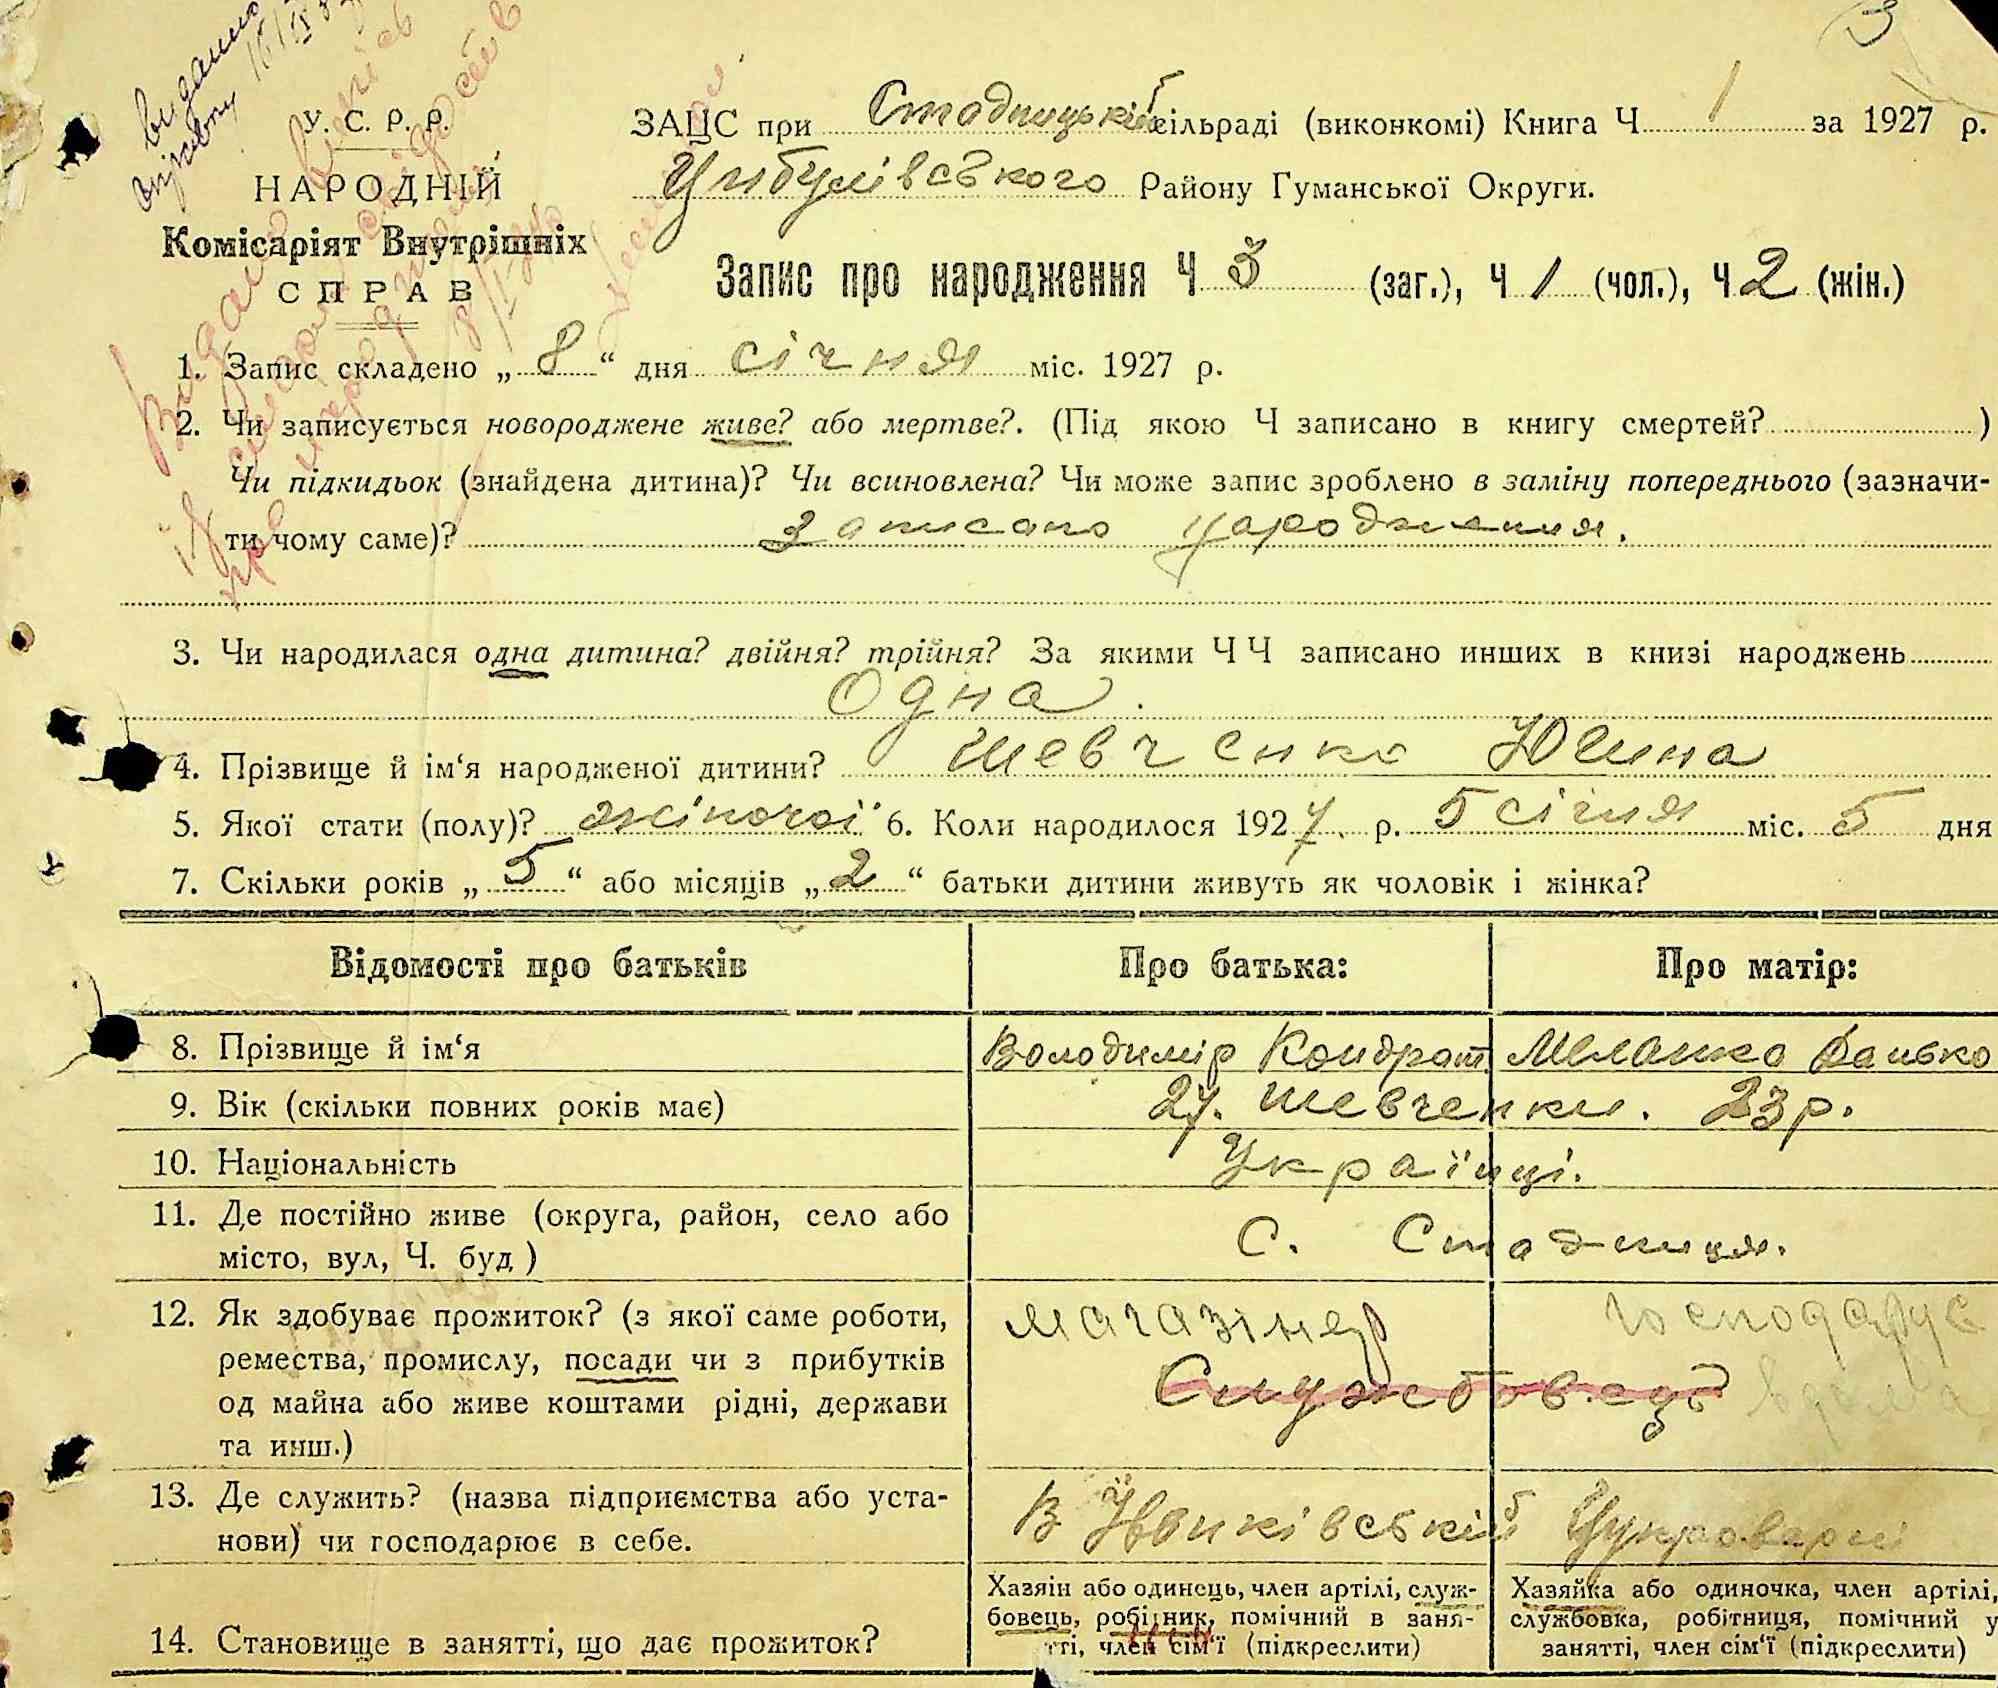 видано
У. С. Р. Р.
НАРОДНІЙ
Комісаріят Внутрішніх
СПРАВ
ЗАЦС при Стадницькій сільраді (виконкомі) Книга Ч 1 за 1927 р.
Цибулівського Району Гуманської Округи.
Запис про народження Ч 3 (заг.), Ч 1 (чол.), Ч 2 (жін.)
1. Запис складено „8“ дня січня міс. 1927 р.
2. Чи записується новороджене живе? або мертве?. (Під якою Ч записано в книгу смертей? )
Чи підкидьок (знайдена дитина)? Чи всиновлена? Чи може запис зроблено в заміну попереднього (зазначи-
ти чому саме)? Записано народження.
3. Чи народилася одна дитина? двійня? трійня? За якими ЧЧ записано инших в книзі народжень
Одна.
4. Прізвище й ім‘я народженої дитини? Шевченко Юлина
5. Якої стати (полу)? жіночої 6. Коли народилося 1927. р. 5 січня міс. 5 дня
7. Скільки років „5“ або місяців „2“ батьки дитини живуть як чоловік і жінка?
Відомості про батьків Про батька: Про матір:
8. Прізвище й ім‘я Володимір Кондрат. Меланка Данько
9. Вік (скільки повних років має) 27. Шевченки. 23 р.
10. Національність Українці.
11. Де постійно живе (округа, район, село або
місто, вул, Ч. буд.) С. Стадниця.
12. Як здобуває прожиток? (з якої саме роботи,
ремества, промислу, посади чи з прибутків
од майна або живе коштами рідні, держави
та инш.)
магазінер господарує
Службовець вдома
13. Де служить? (назва підприємства або уста-
нови) чи господарює в себе.
В Цукроварні
14. Становище в занятті, що дає прожиток?
Хазяін або одинець, член артілі, служ-
бовець, робітник, помічний в заня-
тті, член сім‘ї (підкреслити)
Хазяйка або одиночка, член артілі,
службовка, робітниця, помічний у
занятті, член сім‘ї (підкреслити)